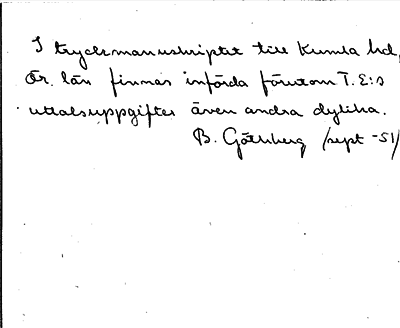 I tryckmanuskriptet till Kumla hd,
Ör. län finnas införda förutom T.E:s
uttalsuppgifter även andra dylika.
B. Göthberg /sept -51/